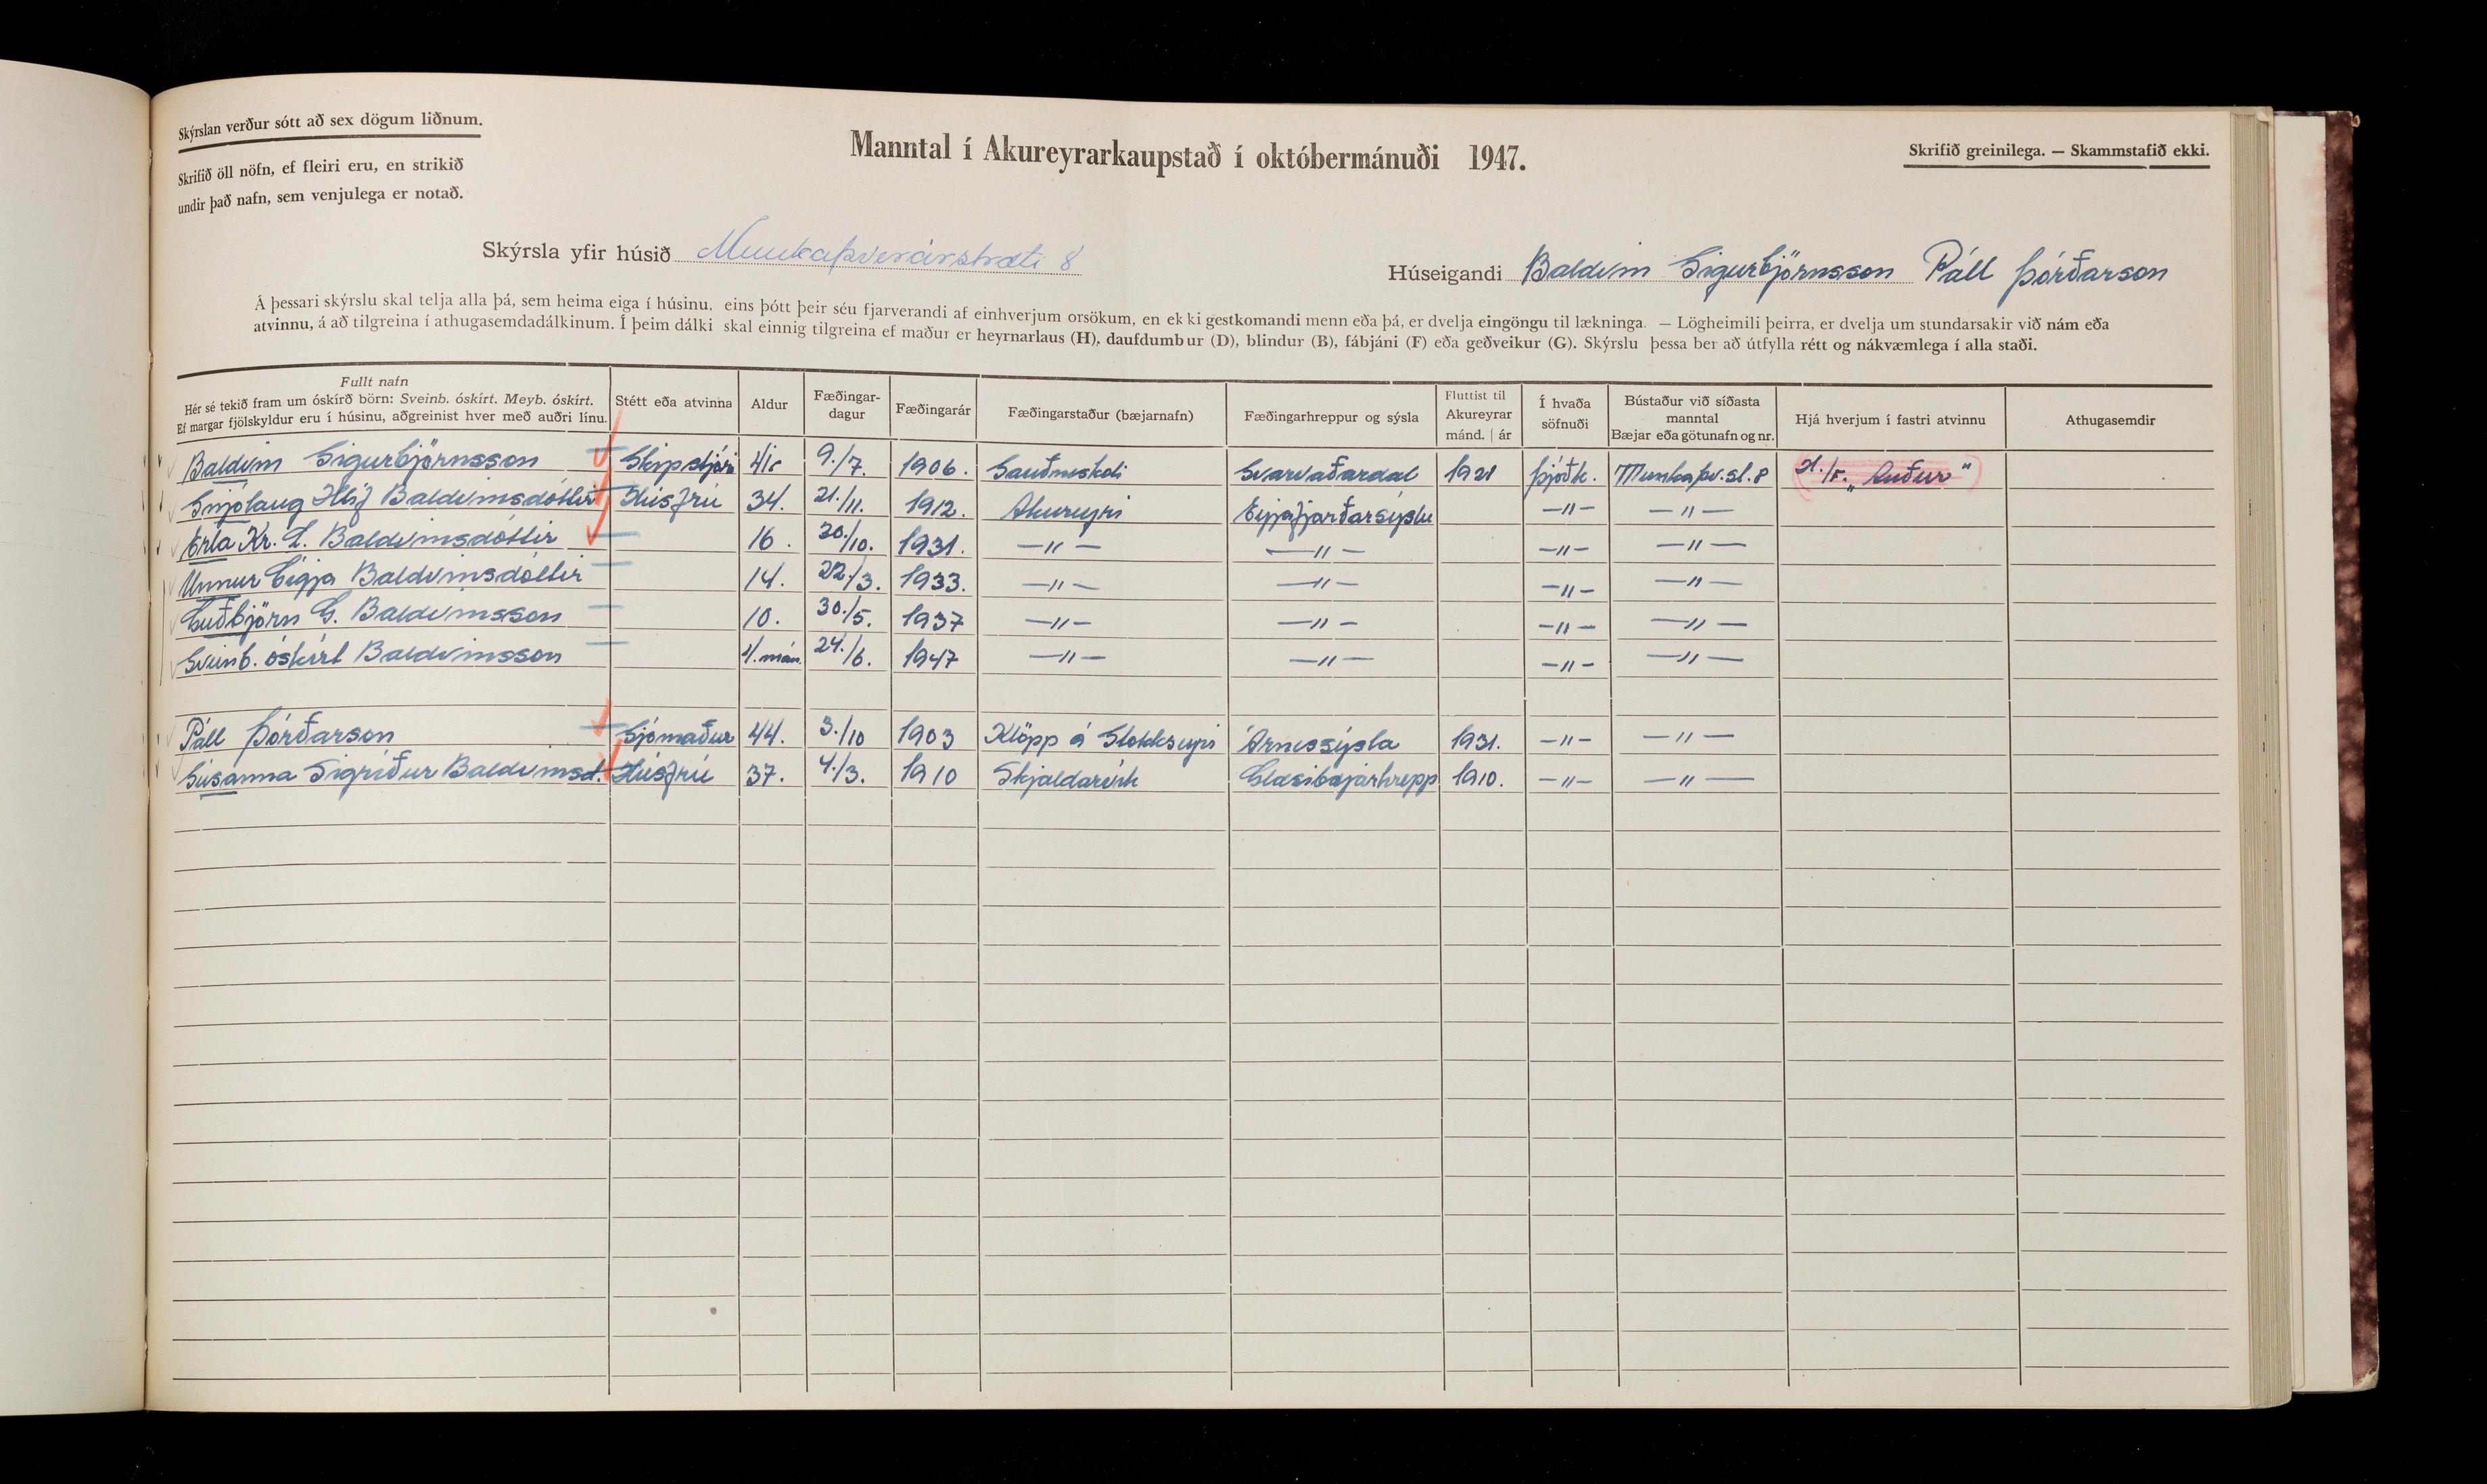 Skýrslan verður sótt að sex dögum liðnum.
Skrifið öll nöfn, ef fleiri eru, en strikið
undir það nafn, sem venjulega er notað.
Manntal í Akureyrarkaupstað í októbermánuði 1947.
Skrifið greinilega. — Skammstafið ekki.
Skýrsla yfir húsið Munkaþverárstræti 8
Húseigandi Baldvin Sigurbjörnsson Páll Þórðarson
Á þessari skýrslu skal telja alla þá, sem heima eiga í húsinu, eins þótt þeir séu fjarverandi af einhverjum orsökum, en ekki gestkomandi menn eða þá, er dvelja eingöngu til lækninga. — Lögheimili þeirra, er dvelja um stundarsakir við nám eða
atvinnu, á að tilgreina í athugasemdadálkinum. Í þeim dálki skal einnig tilgreina ef maður er heyrnarlaus (H), daufdumbur (D), blindur (B), fábjáni (F) eða geðveikur (G). Skýrslu þessa ber að útfylla rétt og nákvæmlega í alla staði.
Fullt nafn
Hér sé tekið fram um óskírð börn: Sveinb. óskírt. Meyb. óskírt.
Ef margar fjölskyldur eru í húsinu, aðgreinist hver með auðri línu.
Stétt eða atvinna
Aldur
Fæðingar-
dagur
Fæðingarár
Fæðingarstaður (bæjarnafn)
Fæðingarhreppur og sýsla
Fluttist til
Akureyrar
mánd. | ár
Í hvaða
söfnuði
Bústaður við síðasta
manntal
Bæjar eða götunafn og nr.
Hjá hverjum í fastri atvinnu
Athugasemdir
Baldvin Sigurbjörnsson Skipstjóri 41 9./7. 1906. Sauðneskoti Svarvaðardal 1921 Þjóðk. Munkaþv.st. 8 H./F. „Auður"
Snjólaug Hlíf Baldvinsdóttir Húsfrú 34. 21./11. 1912. Akureyri Eyjafjarðarsýslu —〃— —〃—
Erla Kr. L. Baldvinsdóttir 16. 20./10. 1931. —〃— —〃— —〃— —〃—
Unnur Gígja Baldvinsdóttir 14. 22./3. 1933. —〃— —〃— —〃— —〃—
Guðbjörn G. Baldvinsson 10. 30./5. 1937 —〃— —〃— —〃— —〃—
Sveinb. óskírt Baldvinsson 4. mán. 24./6. 1947 —〃— —〃— —〃— —〃—
Páll Þórðarson Sjómaður 44. 3./10 1903 Klöpp á Stokkseyri Árnessýsla 1931. —〃— —〃—
Súsanna Sigríður Baldvinsd. Húsfrú 37. 4./3. 1910 Skjaldarvík Glæsibæjarhrepp 1910. —〃— —〃—